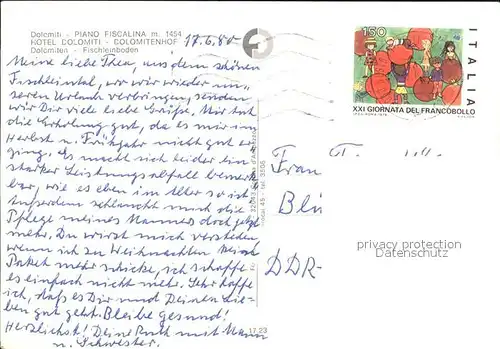 Dolomiti - PIANO FISCALINA m. 1454
HOTEL DOLOMITI - DOLOMITENHOF
Dolomiten - Fischleinboden
17.6.80
Meine liebe Thea, aus dem schönen
Fischleintal, wo wir wieder un-
seren Urlaub verbringen, senden
wir Dir viele liebe Grüße. Mir tut
die Erholung gut, da es mir im
Herbst u. Frühjahr nicht gut er-
ging. Es macht sich leider ein
starker Leistungsabfall bemerk-
bar, wie es eben im Alter so ist.
Außerdem schlaucht mich die
Pflege meines Mannes doch jetzt
mehr. Du wirst mich verstehen,
wenn ich zu Weihnachten kein
Paket mehr schicke, ich schaffe
es einfach nicht mehr. Ich hoffe
ich, daß es Dir und Deinen Lie-
ben gut geht. Bleibe gesund!
Herzlichst! Deine Ruth mit Mann
u. Schwester.
150
ITALIA
XXI GIORNATA DEL FRANCOBOLLO
Frau
Blü
DDR-
privacy protection
Datenschutz
17 23